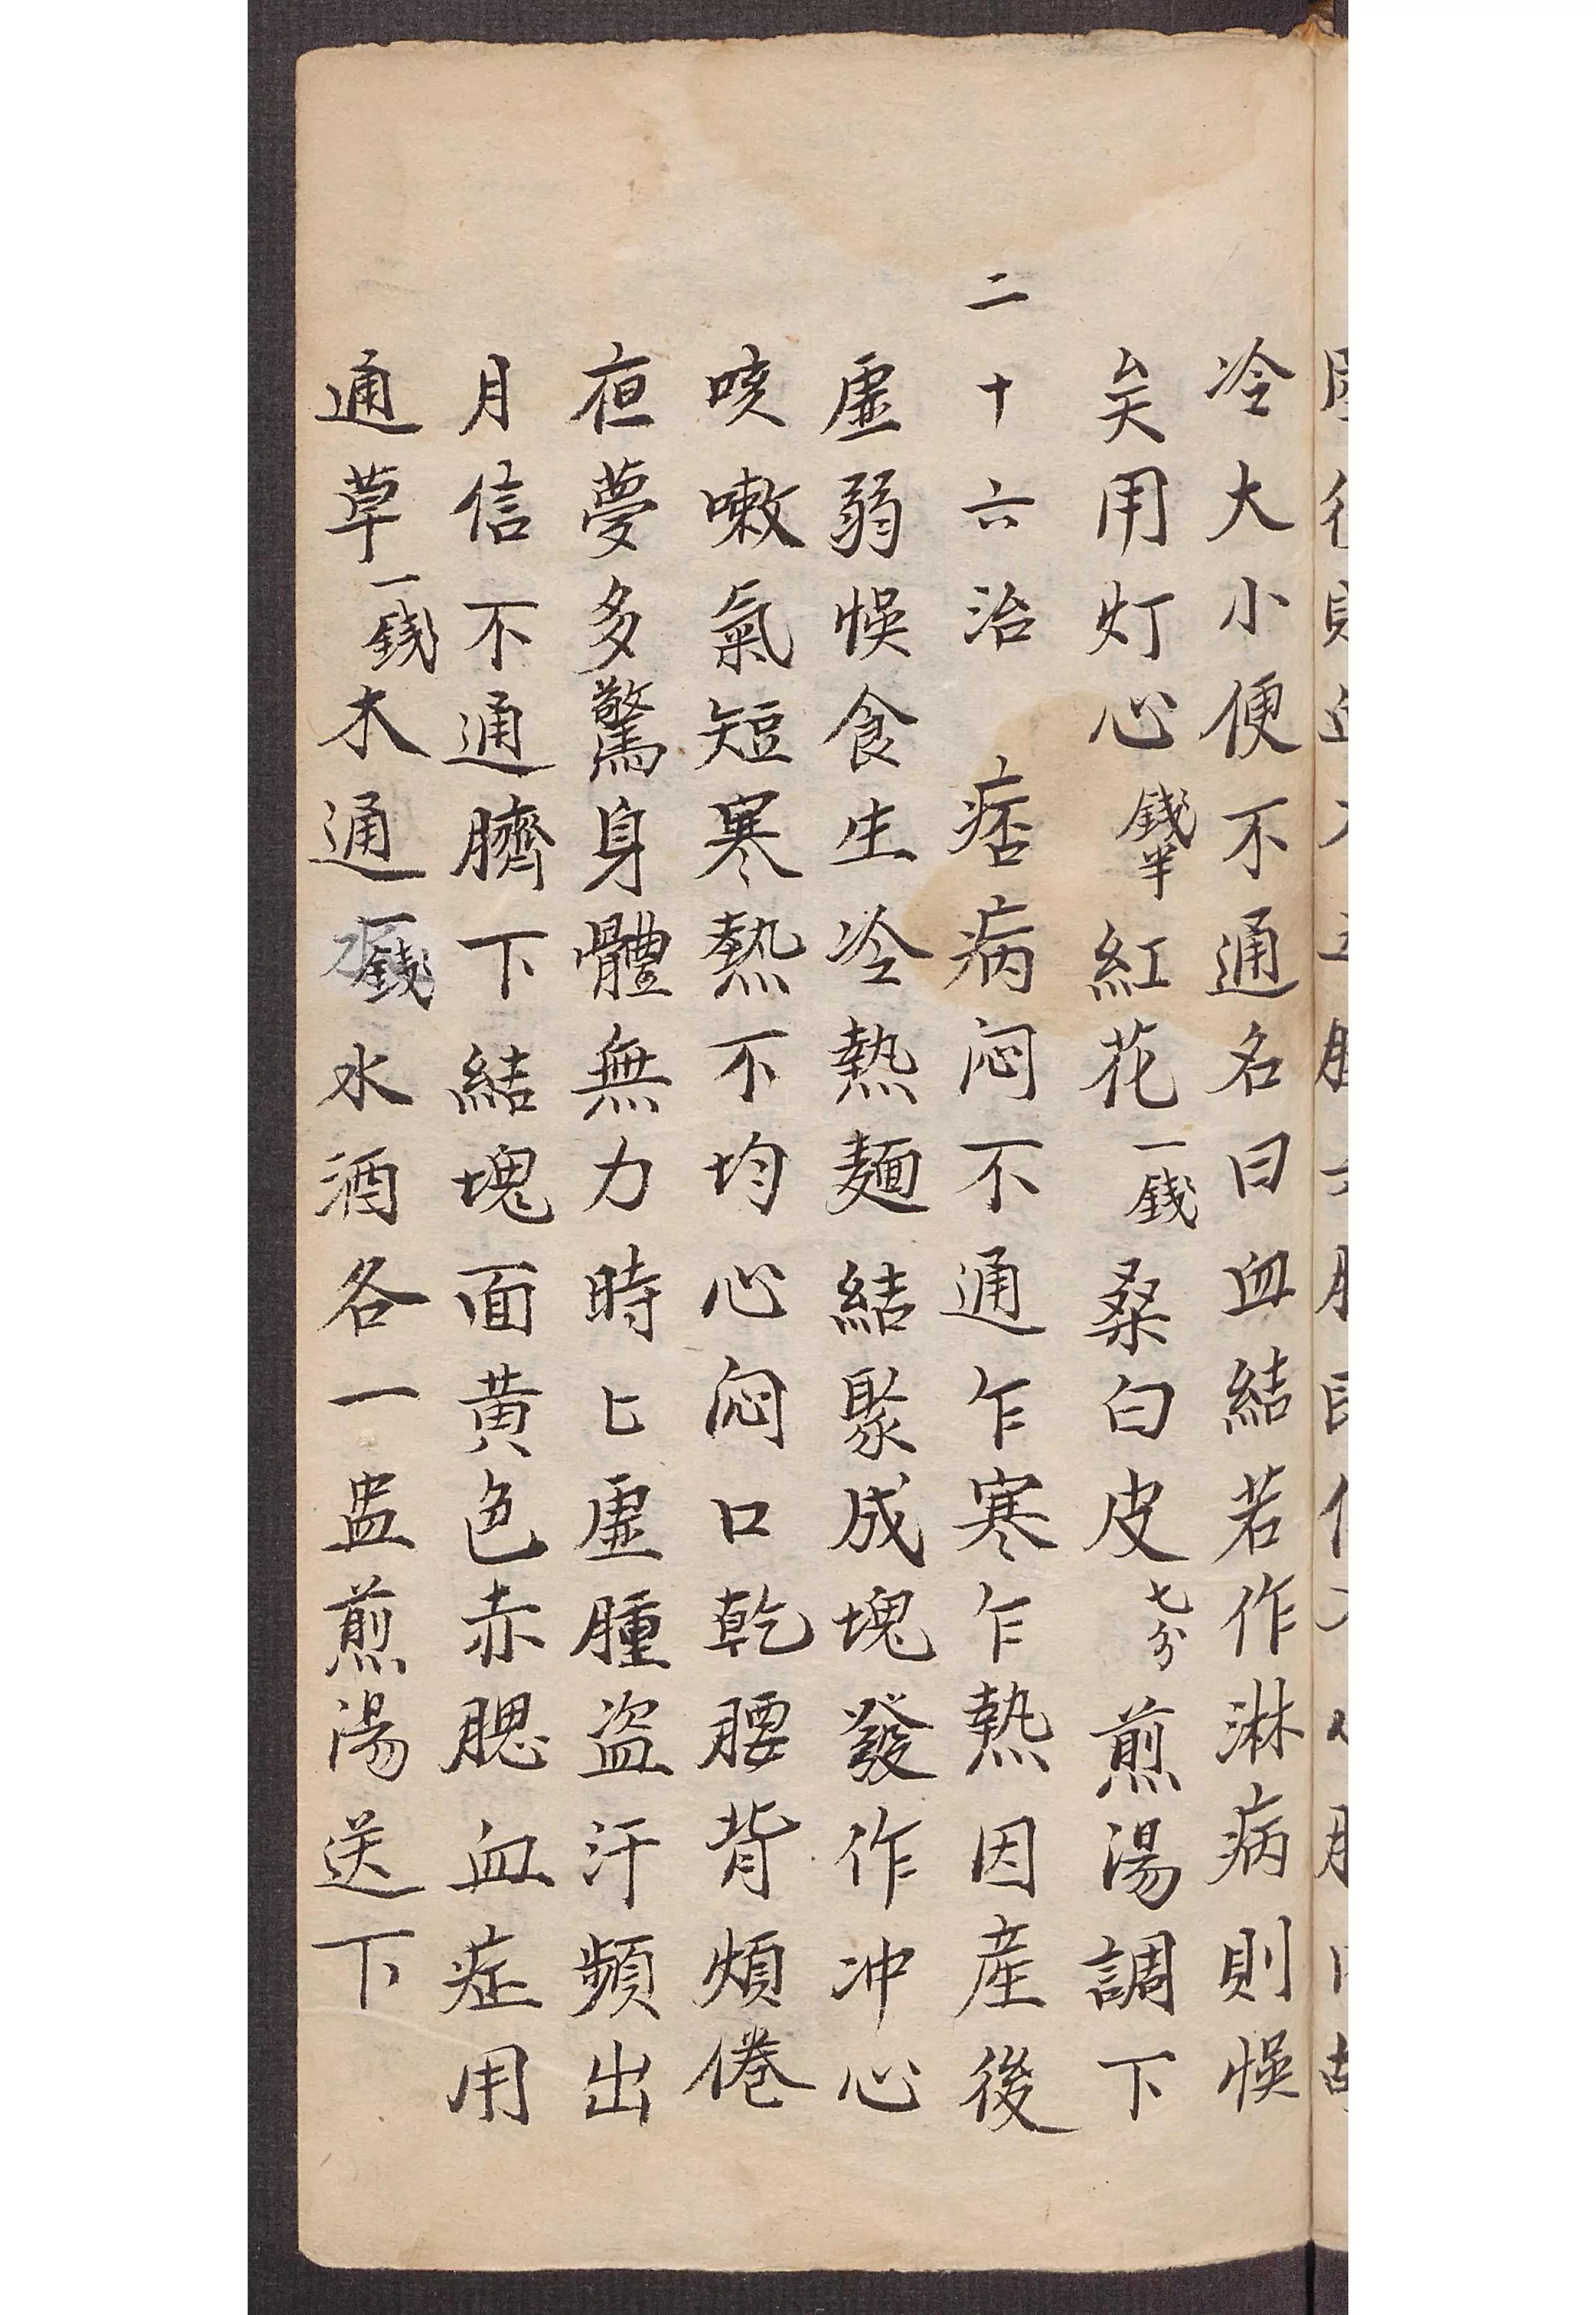 冷大小便不通名曰血結若作淋病則悞
矣用灯心錢半紅花一錢桑白皮七分煎湯調下
二十六治 痞病闷不通乍寒乍熱因產後
虛弱悞食生冷熱麺結聚成塊發作冲心
咳嗽氣短寒熱不均心闷口乾腰背煩倦
夜夢多驚身體無力時匕虛腫盗汗頻出
月信不通臍下結塊面黄色赤腮血症用
通草一錢木通一錢水酒各一盅煎湯送下